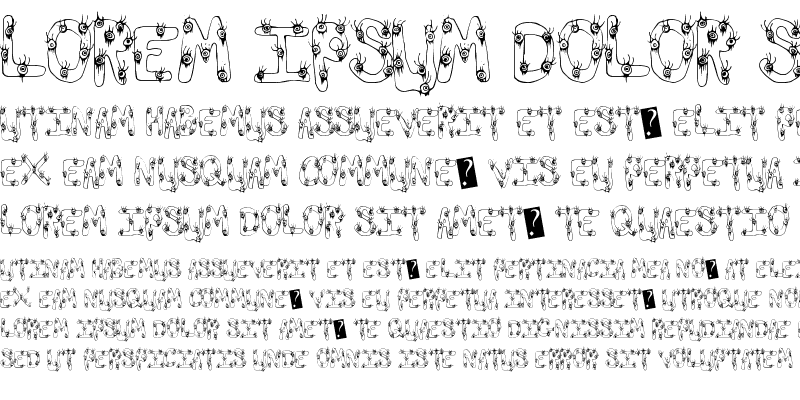 LOREM IPSUM DOLOR S
UTINAM HABEMUS ASSUEVERIT ET EST? ELIT P
EX EAM NUSQUAM COMMUNE? VIS EU PERPETUA
LOREM IPSUM DOLOR SIT AMET? TE QUAESTIO
UTINAM HABEMUS ASSUEVERIT ET EST? ELIT PERTINACIA MEA NO? AT ELE
EX EAM NUSQUAM COMMUNE? VIS EU PERPETUA INTERESSET? UTROQUE NO
LOREM IPSUM DOLOR SIT AMET? TE QUAESTIO DIGNISSIM REPUDIANDAE
SED UT PERSPICIATIS UNDE OMNIS ISTE NATUS ERROR SIT VOLUPTATEM